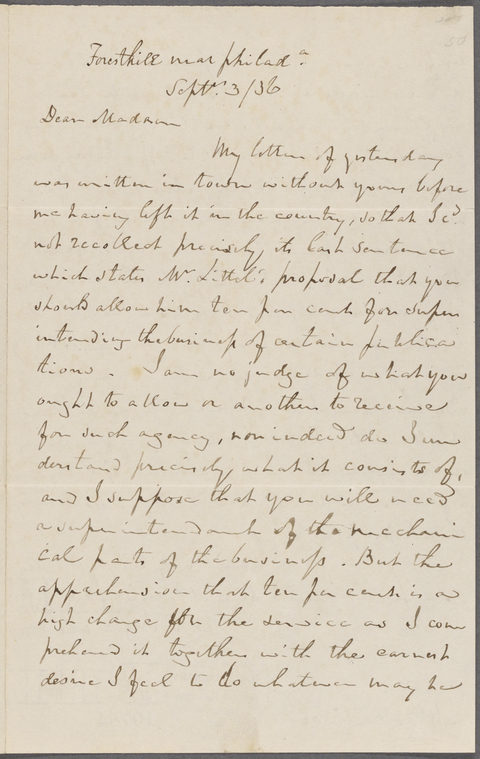 Foresthill near philad.ª
Septr. 3/36
Dear Madam
My letter of yesterday
was written in town without yours before
me having left it in the country, so that I cd.
not recollect precisely its last sentence
which states Mr. Littel's proposal that you
should allow him ten per cent for super
intending the business of certain publica
tions. I am no judge of what you
ought to allow or another to receive
for such agency, nor indeed do I un
derstand precisely what it consists of,
and I suppose that you will need
a superintendant of the mechani
cal parts of the business. But the
apprehension that ten per cent is a
high charge for the service as I com
prehend it together with the earnest
desire I feel to do whatever may be